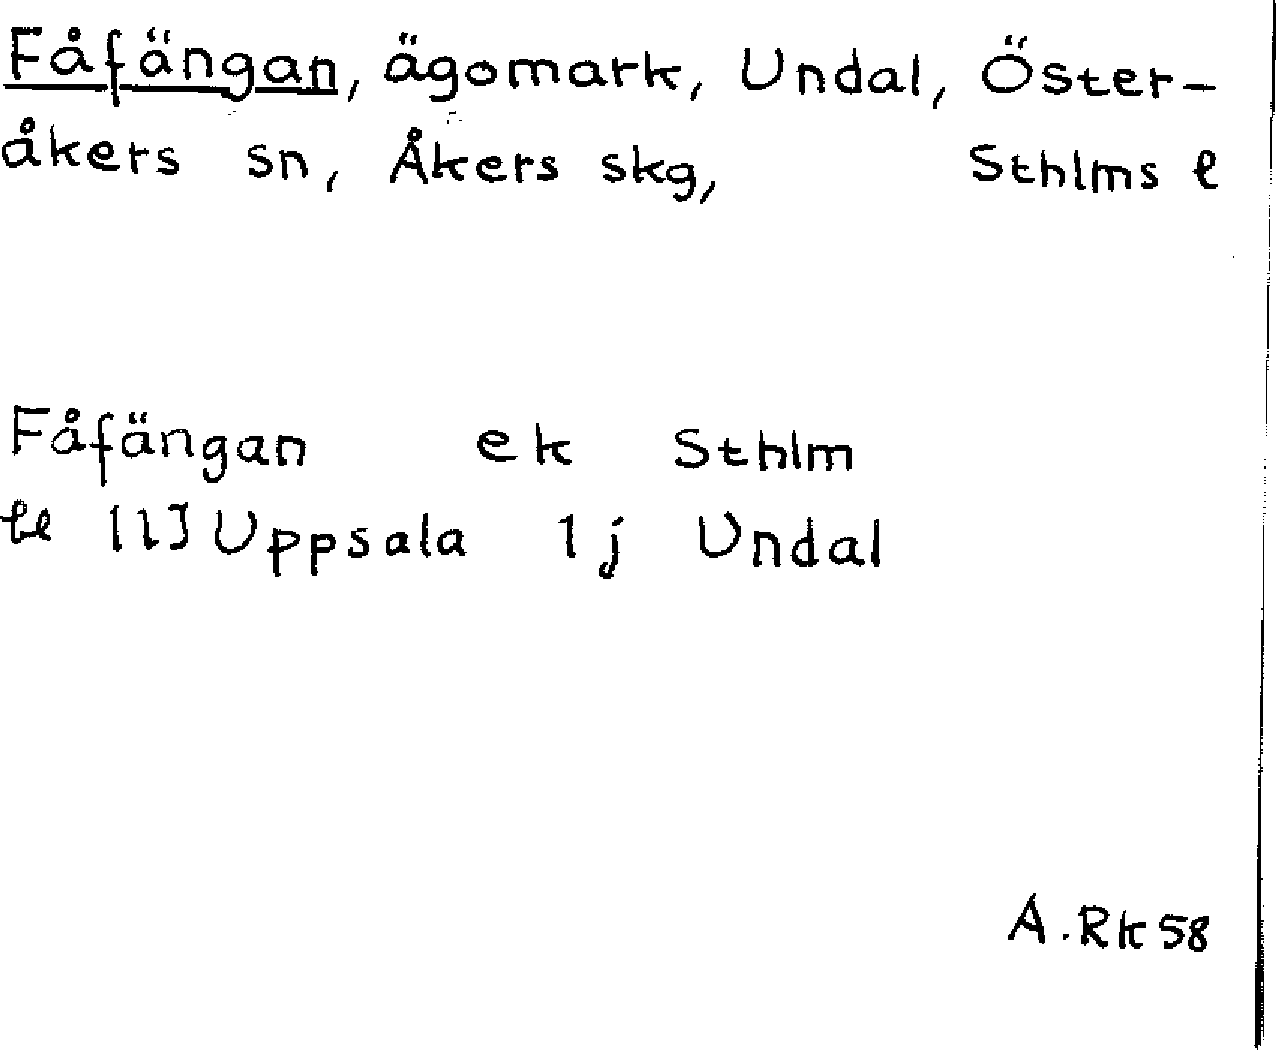 Fåfängan, ägomark, Undal, Öster-
åkers sn, Åkers skg, Sthlms l
Fåfängan ek Sthlm
[1] Uppsala 1j Undal
A.Rk 58